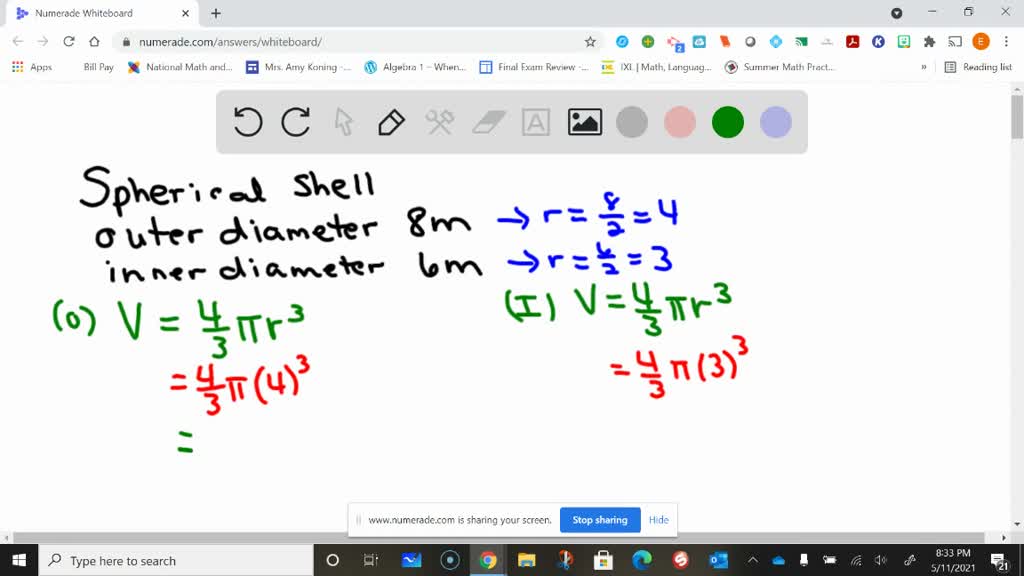 Numerade Whiteboard
numerade.com/answers/whiteboard/
Apps Bill Pay National Math and... Mrs. Amy Koning -... Algebra 1 – When... Final Exam Review -... IXL | Math, Languag... Summer Math Pract... » Reading list
Spherical shell
outer diameter 8m → r = 8/2 = 4
inner diameter 6m → r = 6/2 = 3
(O) V = 4/3 πr³
(I) V = 4/3 πr³
= 4/3 π(4)³
= 4/3 π(3)³
=
www.numerade.com is sharing your screen. Stop sharing Hide
Type here to search
8:33 PM
5/11/2021
21